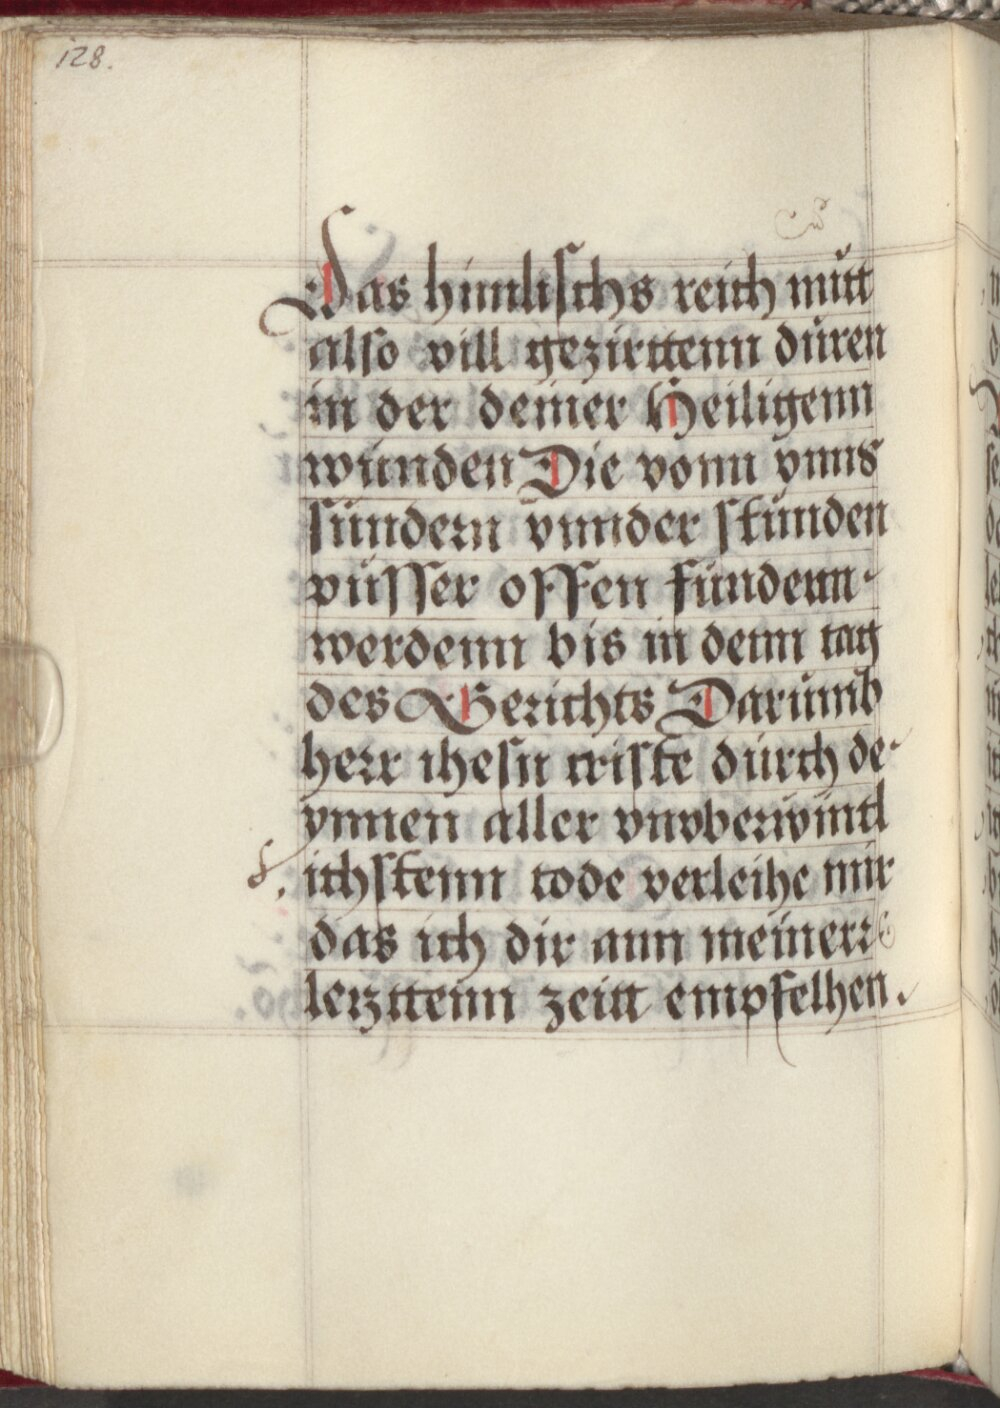 128.
Das himlischs reich mitt
also vill gezirttenn düren
in der deiner Heiligenn
wünden Die vonn vnns
sündern vnnder stünden
vüsser offen fündenn
werdenn bis in denn tag
des Gerichts Darümb
herr ihesu criste dürch de
ynnen aller vnvberwintl
ichstenn tode verleihe mir
das ich dir ann meinerr
letzttenn zeitt empfelhen